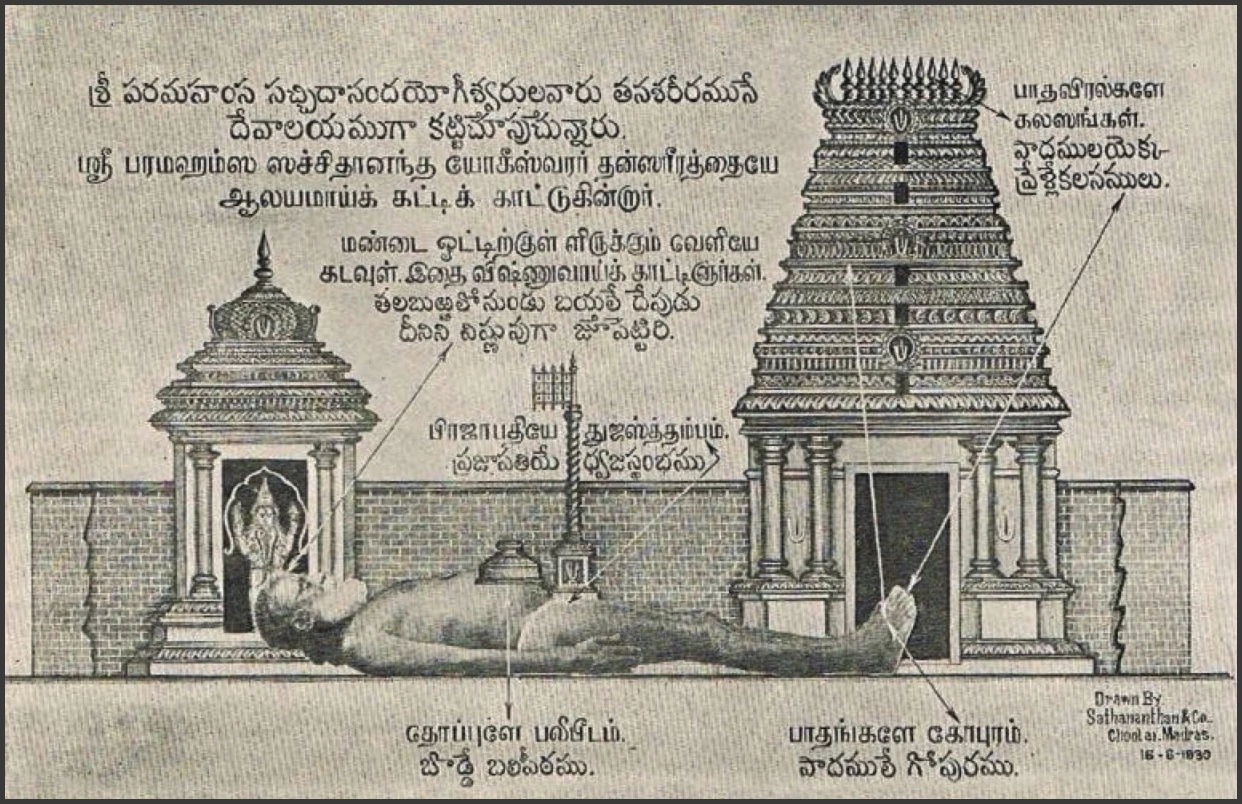 శ్రీ పరమహంస సచ్చిదానందయోగీశ్వరులవారు తనశరీరమునే
దేవాలయముగా కట్టిచూపుచున్నారు.
ஸ்ரீ பரமஹம்ஸ ஸச்சிதானந்த யோகீஸ்வரர் தன்ஸரீரத்தையே
ஆலயமாய்க் கட்டிக் காட்டுகின்றார்.
மண்டை ஓட்டிற்குள் ளிருக்கும் வேளியே
கடவுள். இதை விஷ்ணுவாய்க் காட்டினார்கள்.
తలబుఱ్ఱలోనుండు బయలే దేవుడు
దీనిని విష్ణువుగా జూపెట్టిరి.
பாதவிரல்களே
கலஸங்கள்.
పాదములయొక్క
వ్రేళ్లేకలసములు.
பிரஜாபதியே துஜஸ்த்தம்பம்.
ప్రజాపతియే ధ్వజస్తంభము
தொப்புளே பலிபீடம்.
బొడ్డే బలిపీఠము.
பாதங்களே கோபுரம்.
పాదములే గోపురము.
Drawn By
Sathananthan & Co.
Choolai, Madras.
16-6-1930